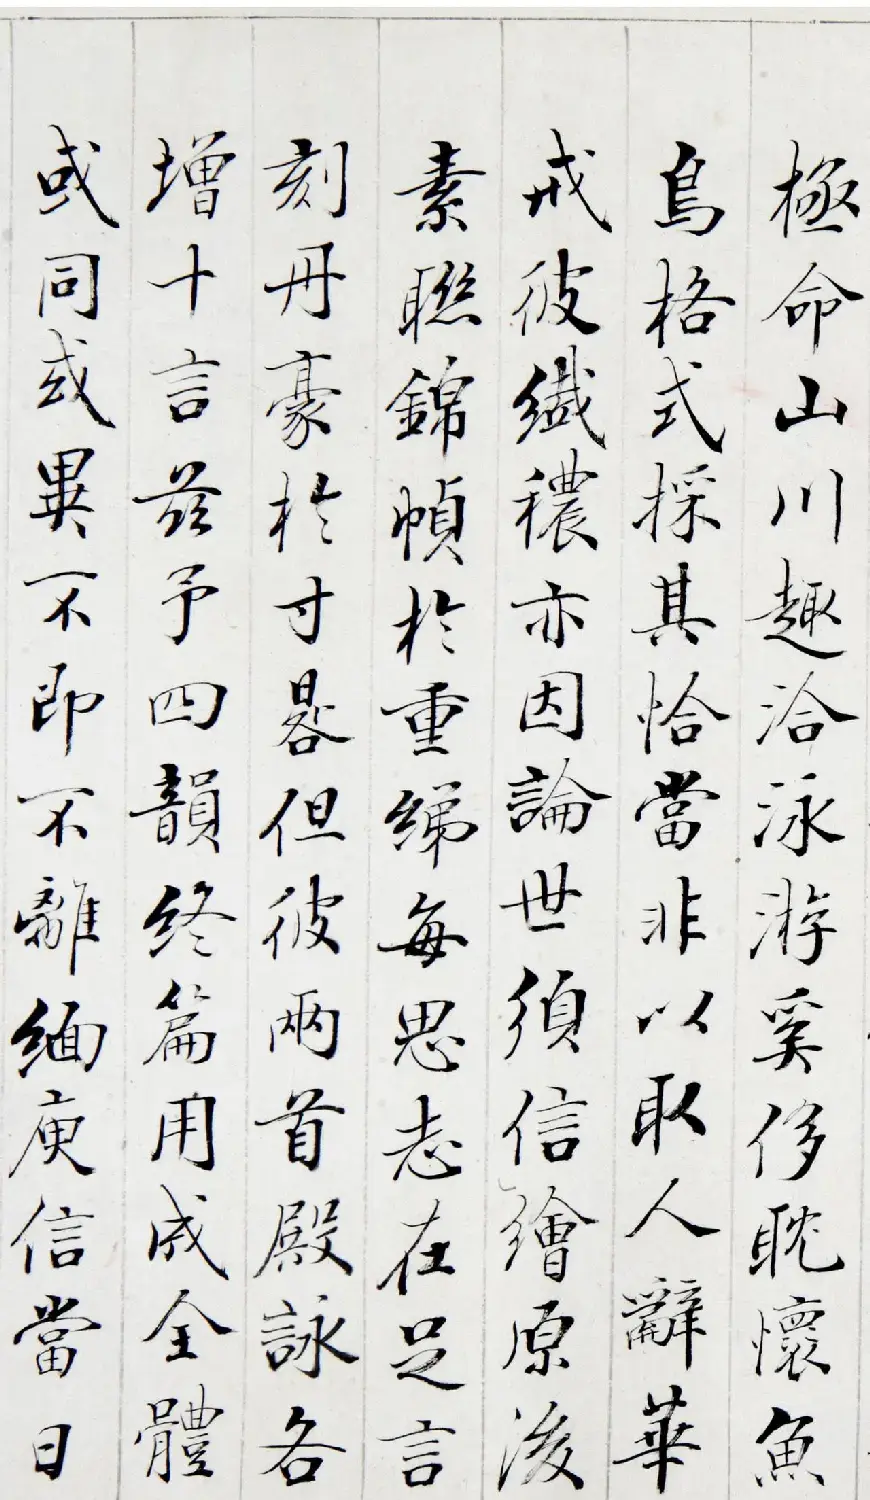 極命山川趣洽泳游奚侈耽懷魚
鳥格式採其恰當非以取人辭華
戒彼纖穠亦因論世須信繪原後
素聯錦幀於重綈每思志在足言
刻丹豪於寸晷但彼兩首殿詠各
增十言茲予四韻終篇用成全體
或同或異不即不離緬庾信當日